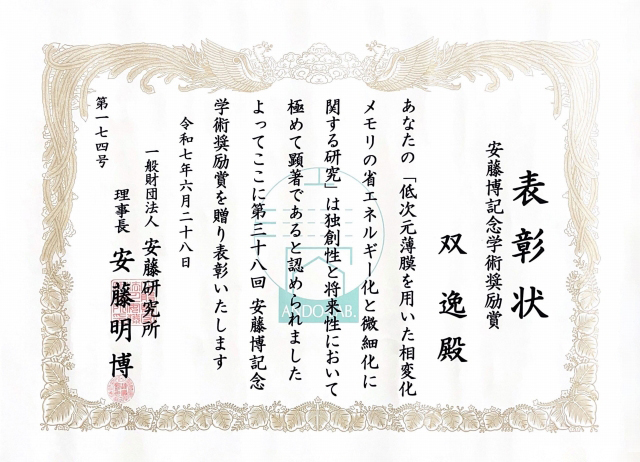 表彰状
安藤博記念学術奨励賞
双逸殿
あなたの「低次元薄膜を用いた相変化
メモリの省エネルギー化と微細化に
関する研究」は独創性と将来性において
極めて顕著であると認められました
よってここに第三十八回 安藤博記念
学術奨励賞を贈り表彰いたします
令和七年六月二十八日
一般財団法人 安藤研究所
理事長 安藤明博
第一七四号
ANDO LAB.